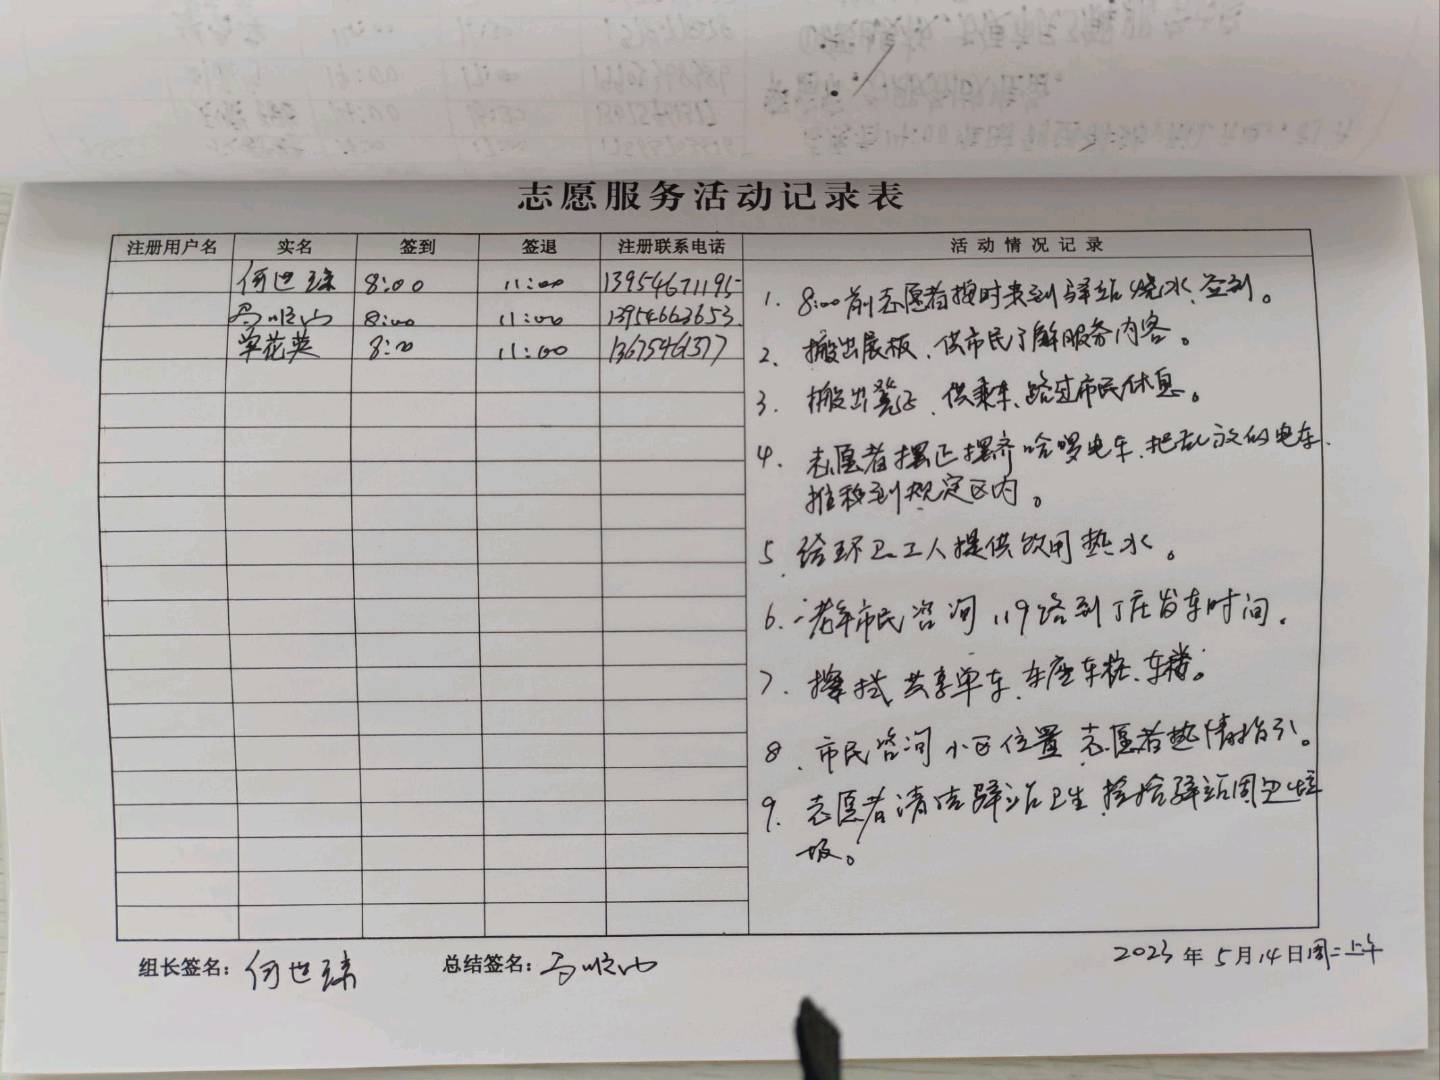 志愿服务活动记录表
注册用户名 实名 签到 签退 注册联系电话 活动情况记录
何世瑧 8:00 11:00 13954671195
马顺山 8:00 11:00 13954663653.
单花英 8:00 11:00 13675461377
1. 8:00前志愿者按时来到驿站烧水、签到。
2. 搬出展板、供市民了解服务内容。
3. 搬出凳子、供乘车、路过市民休息。
4. 志愿者摆正摆齐哈啰电车、把乱放的电车
推移到规定区内。
5. 给环卫工人提供饮用热水。
6. 一老年市民咨询119路到丁庄发车时间。
7. 擦拭共享单车、车座车把、车楼。
8. 市民咨询小区位置 志愿者热情指引。
9. 志愿者清洁驿站卫生 捡拾驿站周边垃
圾。
组长签名: 何世瑧 总结签名: 马顺山
2023年5月14日周二上午